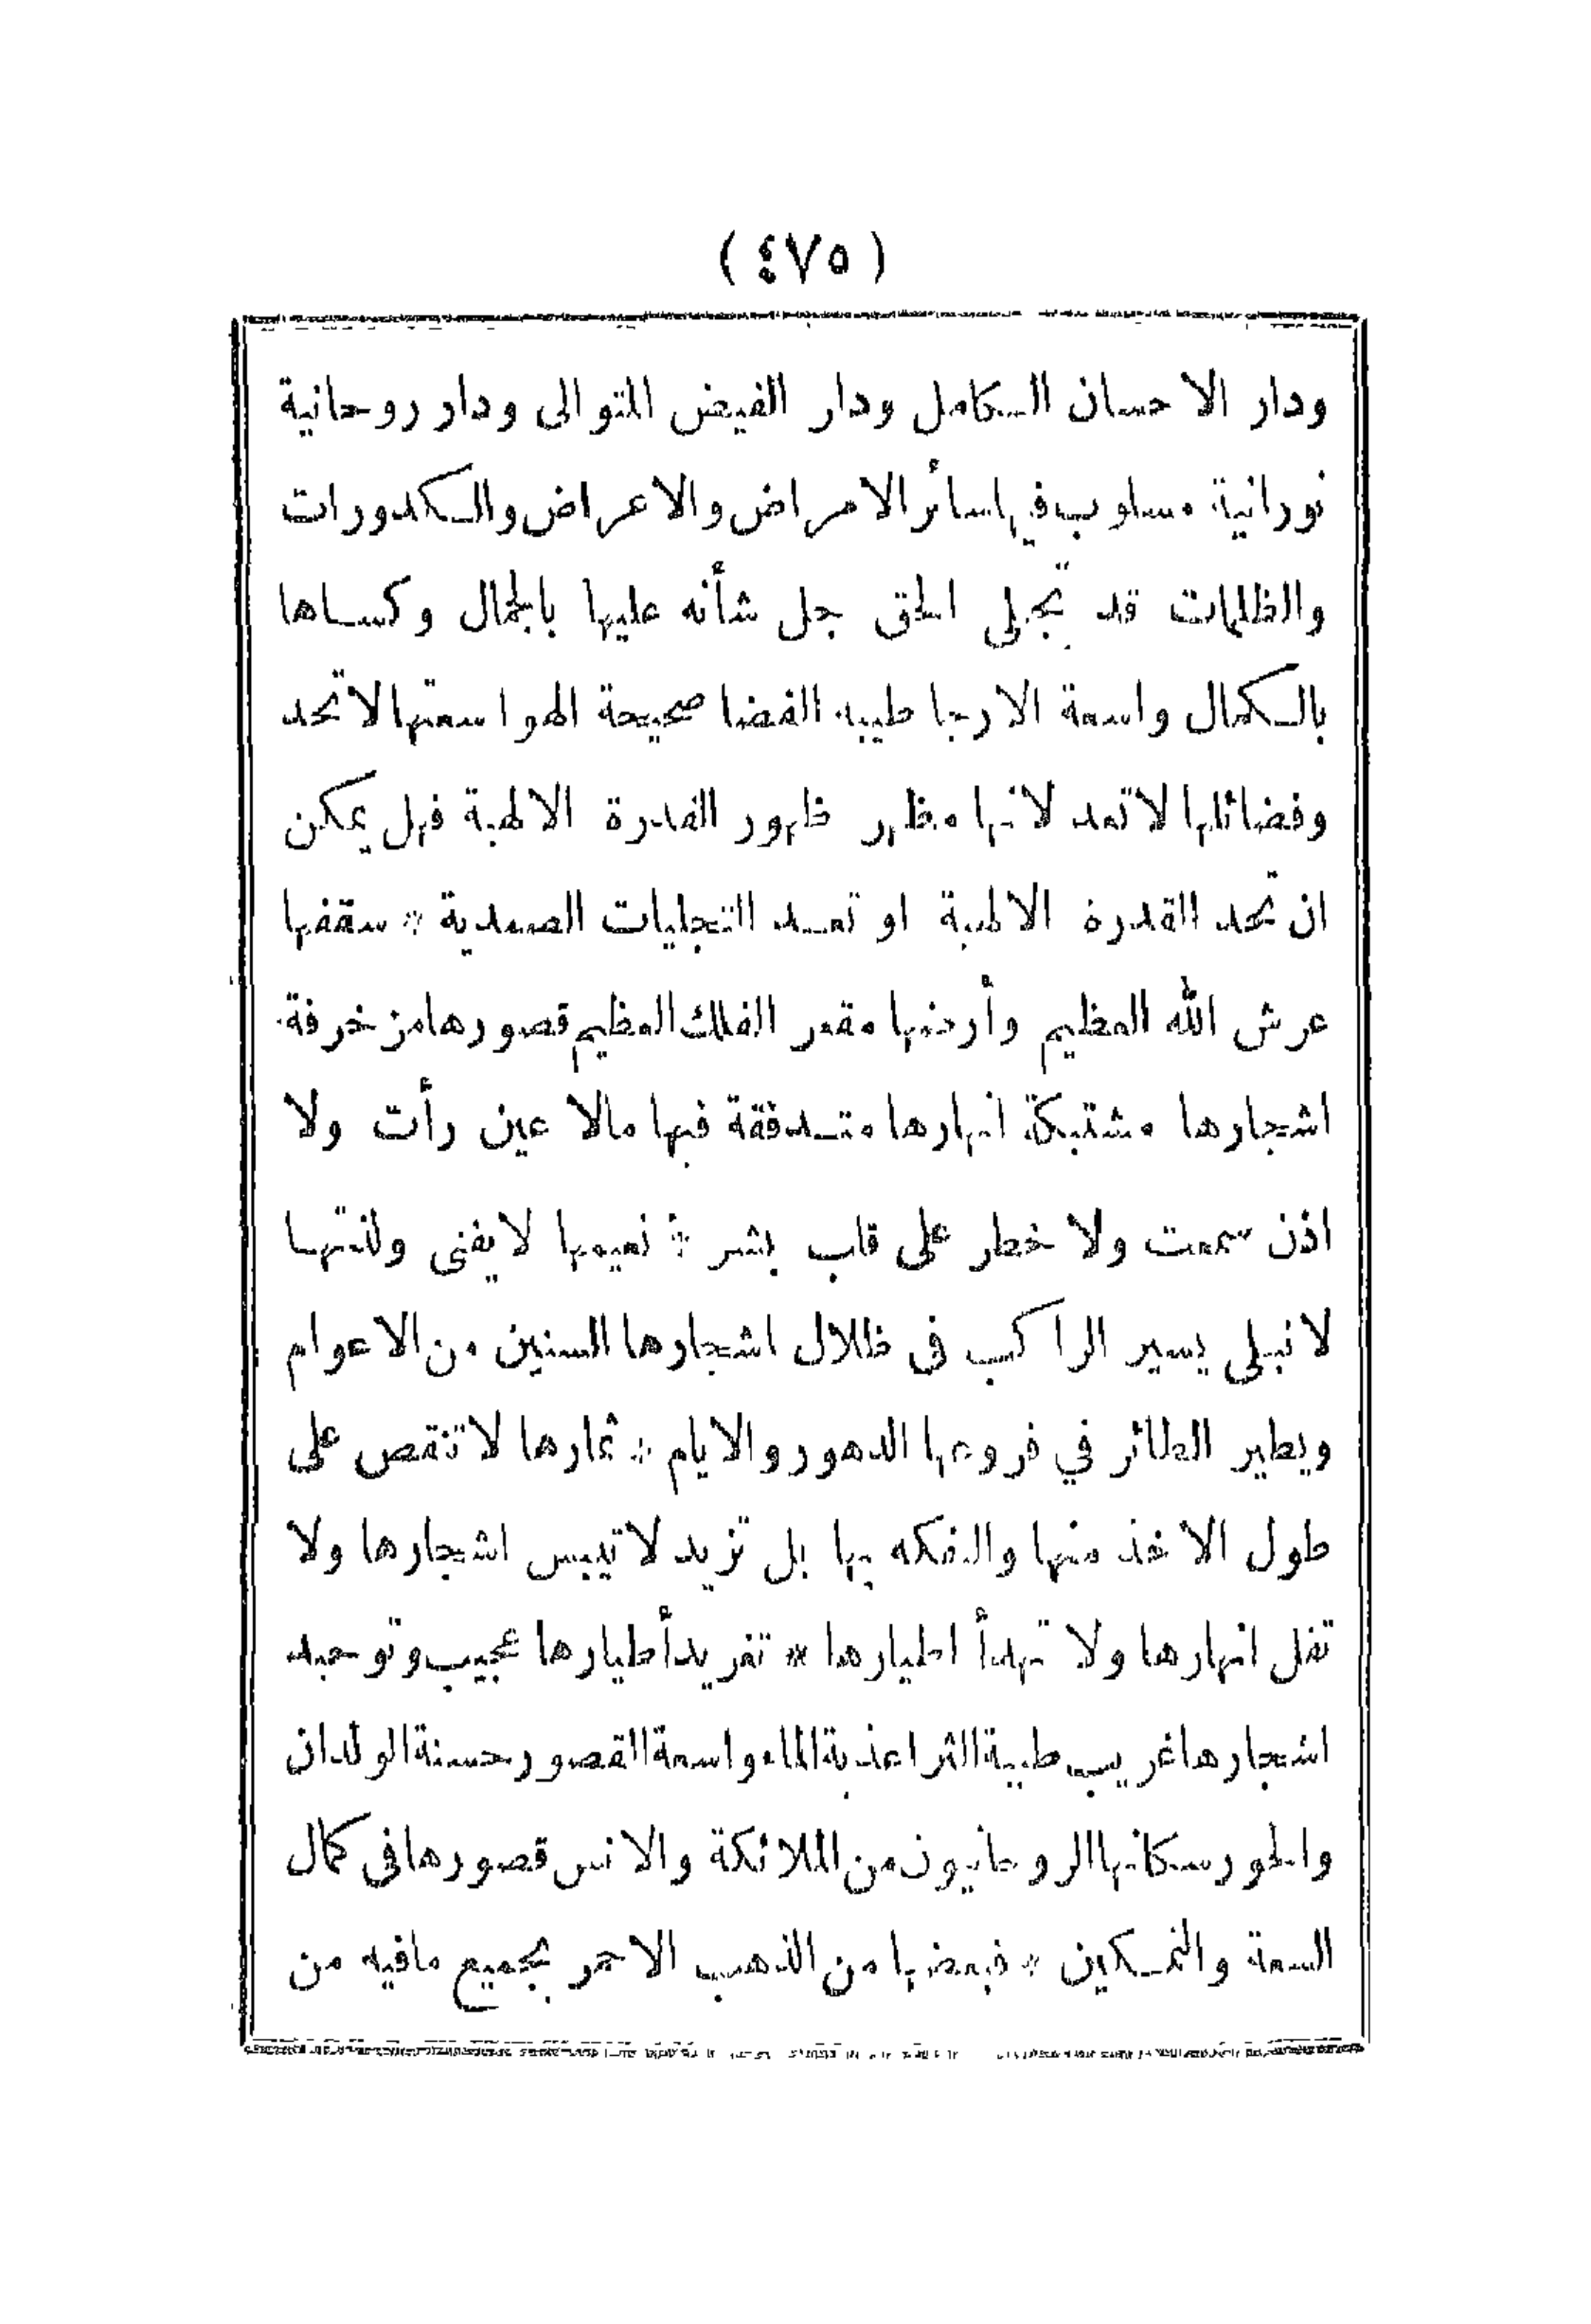 (٤٧٥)
ودار الاحسان الكامل ودار الفيض المتوالى ودار روحانية
نورانية مسلوب فيها سائر الامراض والاعراض والكدورات
والظلمات قد تجلى الحق جل شأنه عليها بالجمال وكساها
بالكمال واسعة الارجا طيبه الفضا صحيحة الهوا سعتها لا تحد
وفضائلها لا تعد لانها مظهر ظهور القدرة الالهية فهل يمكن
ان تحد القدرة الالهية او تعد التجليات الصمدية * سقفها
عرش الله العظيم وأرضها مقعر الفلك العظيم قصورها مزخرفة
اشجارها مشتبكة انهارها متدفقة فيها مالا عين رأت ولا
اذن سمعت ولا خطر على قلب بشر * نعيمها لا يفنى ولذتها
لا تبلى يسير الراكب فى ظلال اشجارها السنين من الاعوام
ويطير الطائر في فروعها الدهور والايام * ثمارها لا تنقص على
طول الاخذ منها والتفكه بها بل تزيد لا تيبس اشجارها ولا
تقل انهارها ولا تهدأ اطيارها * تغريد أطيارها عجيب وتوحيد
اشجارها غريب طيبة الثرا عذبة الماء واسعة القصور حسنة الولدان
والحور سكانها الروحانيون من الملائكة والانس قصورها فى كمال
السعة والتمكين * فبعضها من الذهب الاحمر بجميع مافيه من